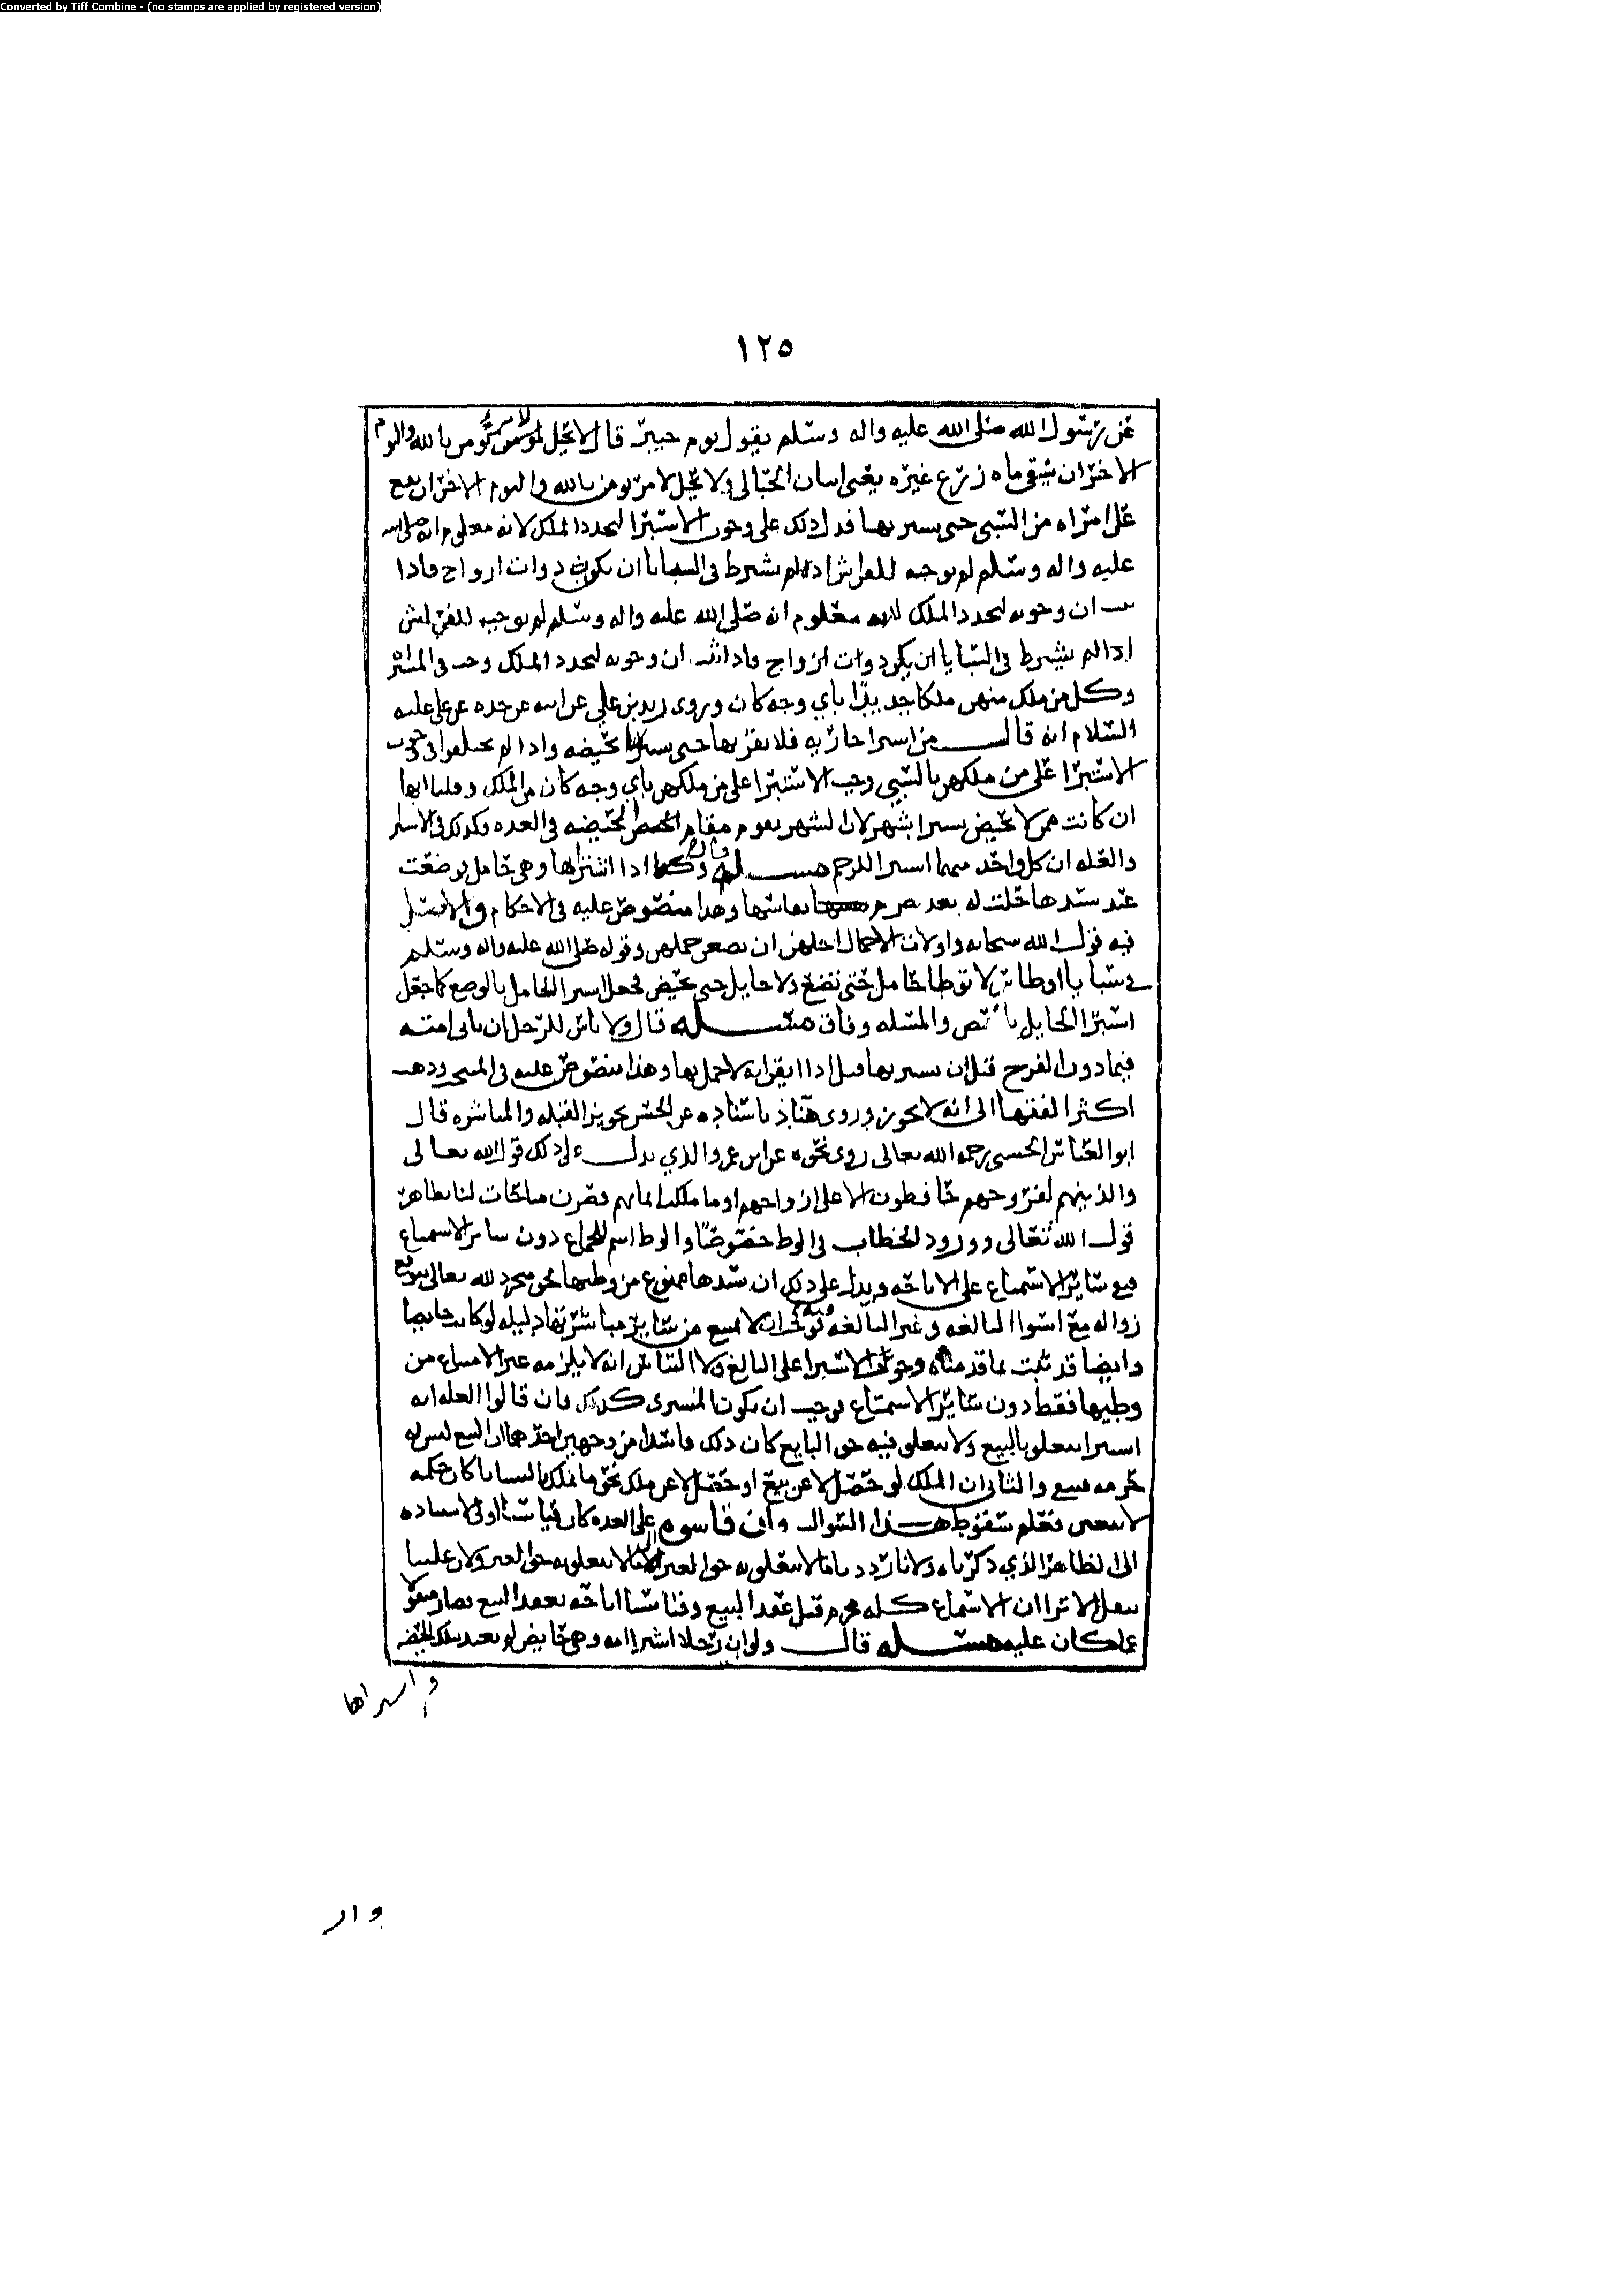 Converted by Tiff Combine - (no stamps are applied by registered version)
١٢٥
عن رسول الله صلى الله عليه واله وسلم يقول يوم خيبر قال لا يحل لامرئ يومن بالله واليوم
الاخر ان يسقي ماه زرع غيره يعني اتيان الحبالى ولا يحل لامرئ يومن بالله واليوم الاخر ان يقع
على امراه من السبي حتى يستبريها فدل ذلك على وجوب الاستبرا لتجدد الملك لانه معلوم انه صلى الله
عليه واله وسلم لم يوجبه للفراش اذ لم يشترط في السبايا ان يكون ذوات ازواج فاذا
ان وجوبه لتجدد الملك لانه معلوم ان صلى الله عليه واله وسلم لم يوجبه للفراش
اذ لم يشترط في السبايا ان يكن ذوات ازواج فاذا ثبت ان وجوبه لتجدد الملك وجب في المشتراه
وكل من ملك منهن ملكا جديدا باي وجه كان وروى زيد بن علي عن ابيه عن جده عن علي عليه
السلام انه قال من اشترا جاريه فلا يقربها حتى يستبريها بحيضه واذا لم يختلفوا في وجوب
الاستبرا على من ملكهن بالسبي وجب الاستبرا على من ملكهن باي وجه كان من الملك وقلنا انها
ان كانت ممن لا تحيض يستبرا بشهر لان الشهر يقوم مقام الحيضه في العده وكذلك في الاستبرا
والعله ان كل واحد منهما استبرا للرحم مسـله قال وكذا اذا اشتراها وهي حامل فوضعت
عند سيدها حلت له بعد خروجها من نفاسها وهذا منصوص عليه في الاحكام والاصل
فيه قول الله سبحانه واولات الاحمال اجلهن ان يضعن حملهن وقوله صلى الله عليه واله وسلم
في سبايا اوطاس لا توطا حامل حتى تضع ولا حايل حتى تحيض فجعل استبرا الحامل بالوضع كما جعل
استبرا الحايل والمسله وفاق مسـله قال ولا باس للرجل ان ياتي امته
فيما دون الفرج قبل ان يستبريها وهذا منصوص عليه في المنتخب وذهب
اكثر الفقها الى انه لا يجوز وروى هناد باسناده عن الحسن تجويز القبله والمباشره قال
ابو العباس الحسني رحمه الله تعالى روي نحوه عن ابن عمر والذي يدل على ذلك قول الله تعالى
والذين هم لفروجهم حافظون الا على ازواجهم او ما ملكت ايمانهم فصرن مباحات لنا بظاهر
قول الله تعالى وورود الخطاب في الوطء خصوصا والوطء اسم للجماع دون ساير الاستمتاع
فبقي ساير الاستمتاع على الاباحه ويدل على ذلك ان سيدها ممنوع من وطيها لحق مجرد لله تعالى يتوقع
زواله مع استوا البالغه وغير البالغه فيه فوجب ان لا يمنع من ساير مباشرتها دليله لو كانت حايضا
وايضا قد ثبت بما قدمناه وجوب الاستبرا على البايع ولا التباس انه لا يلزمه غير الامتناع من
وطيها فقط دون ساير الاستمتاع فوجب ان يكون المشتري كذلك فان قالوا العله انه
استبرا يتعلق بالبيع ولا يتعلق فيه حق البايع كان ذلك فاسدا من وجهين احدهما ان البيع ليس له
حرمه والثاني ان الملك لو حصل لا عن بيع او حصل لا عن ملك نحو ما يملك بالسبايا كان حكمه
لا يتغير فعلم سقوط هـذا السوال وان قاسوه على العده كان قياسنا اولى لاستناده
الى الظاهر الذي ذكرناه ولانا رددنا ما لا يتعلق به حق الغير الى ما لا يتعلق به حق الغير ولان علتنا
تنقل الا ترا ان الاستمتاع كـله محرم قبل عقد البيع وقياسنا اباحه بعقد البيع فصار منقولا
عما كان عليه مسـله قال ولو ان رجلا اشترا امه وهي حايض لم يعتد بتلك الحيضه
واستبراها
وان